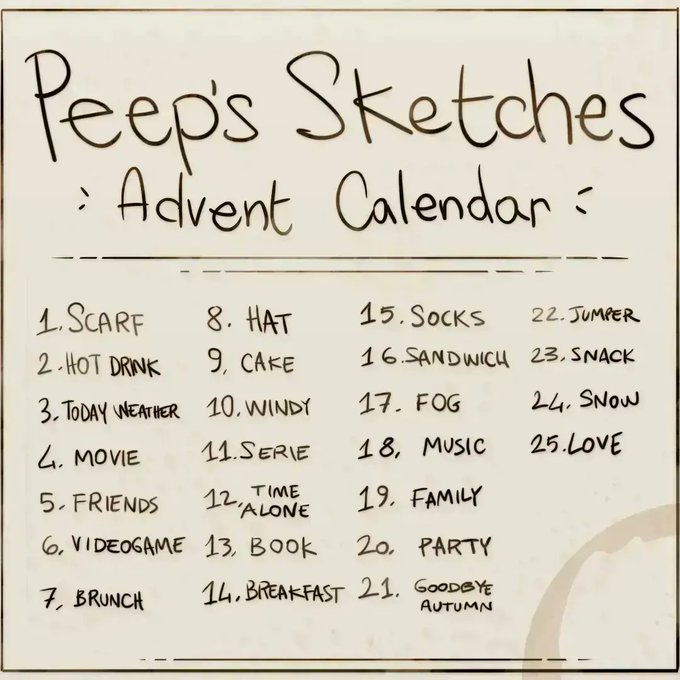 Peep's Sketches
Advent Calendar
1. SCARF
2. HOT DRINK
3. TODAY WEATHER
4. MOVIE
5. FRIENDS
6. VIDEOGAME
7, BRUNCH
8. HAT
9, CAKE
10. WINDY
11. SERIE
12. TIME
ALONE
13, BOOK
14. BREAKFAST
15. SOCKS
16. SANDWICH
17. FOG
18, MUSIC
19. FAMILY
20. PARTY
21. GOODBYE
AUTUMN
22. JUMPER
23. SNACK
24. SNOW
25. LOVE